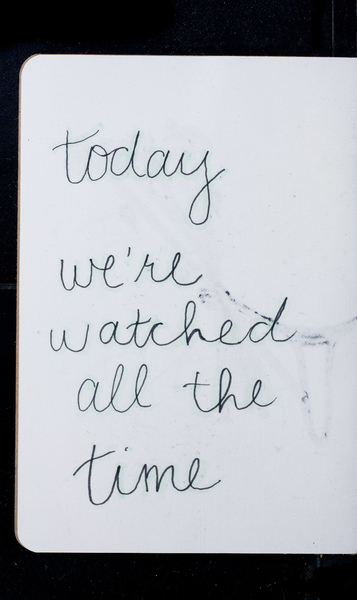 today
we're
watched
all the
time